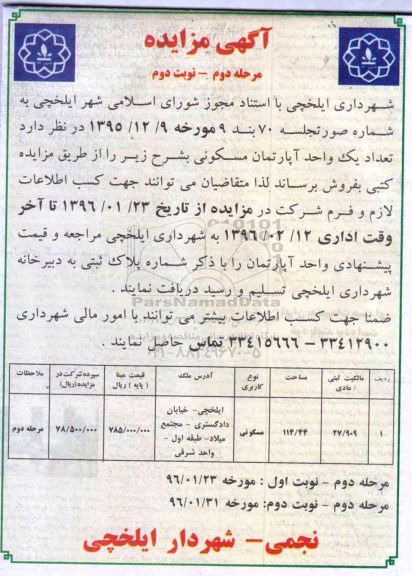 آگهی مزایده
مرحله دوم - نوبت دوم
شهرداری ایلخچی با استناد مجوز شورای اسلامی شهر ایلخچی به
شماره صورتجلسه ۷۰ بند ۹ مورخه ۹/ ۱۲/ ۱۳۹۵ در نظر دارد
تعداد یک واحد آپارتمان مسکونی بشرح زیر را از طریق مزایده
کتبی بفروش برساند لذا متقاضیان می توانند جهت کسب اطلاعات
لازم و فرم شرکت در مزایده از تاریخ ۲۳/ ۰۱/ ۱۳۹۶ تا آخر
وقت اداری ۱۲/ ۰۲/ ۱۳۹۶ به شهرداری ایلخچی مراجعه و قیمت
پیشنهادی واحد آپارتمان را با ذکر شماره پلاک ثبتی به دبیرخانه
شهرداری ایلخچی تسلیم و رسید دریافت نمایند .
ParsNamadData
ضمنا جهت کسب اطلاعات بیشتر می توانند با امور مالی شهرداری
۳۳۴۱۲۹۰۰ - ۳۳۴۱۵۶۶۶ تماس حاصل نمایند .
ردیف | مالکیت ثبتی / عادی | مساحت | نوع کاربری | آدرس ملک | قیمت مبنا ( پایه ) ریال | سپرده شرکت در مزایده (ریال) | ملاحظات
۱ | ۲۷/۹۰۹ | ۱۱۴/۴۴ | مسکونی | ایلخچی- خیابان دادگستری - مجتمع میلاد- طبقه اول - واحد شرقی | ۷۸۵/۰۰۰/۰۰۰ | ۷۸/۵۰۰/۰۰۰ | مرحله دوم
مرحله دوم - نوبت اول : مورخه ۹۶/۰۱/۲۳
مرحله دوم - نوبت دوم: مورخه ۹۶/۰۱/۳۱
نجمی- شهردار ایلخچی